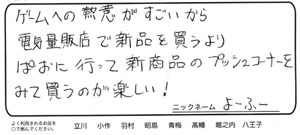 ゲームへの熱意がすごいから
電気量販店で新品を買うより
ぱおに行って新商品のプッシュコーナーを
みて買うのが楽しい!
ニックネーム よーふー
よく利用されるお店を
○で囲んでください。 立川 小作 羽村 昭島 青梅 高幡 堀之内 八王子